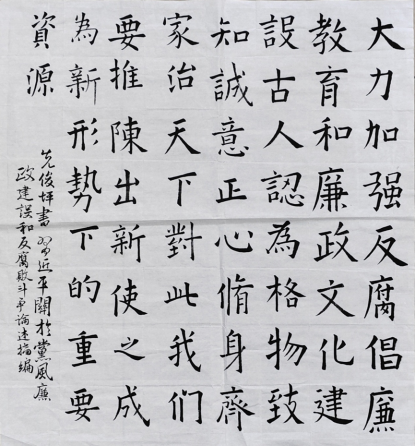 大力加强反腐倡廉
教育和廉政文化建
設古人認為格物致
知誠意正心脩身齊
家治天下對此我們
要推陳出新使之成
為新形勢下的重要
資源
先俊坪書習近平關於黨風廉
政建設和反腐敗斗爭論述摘編